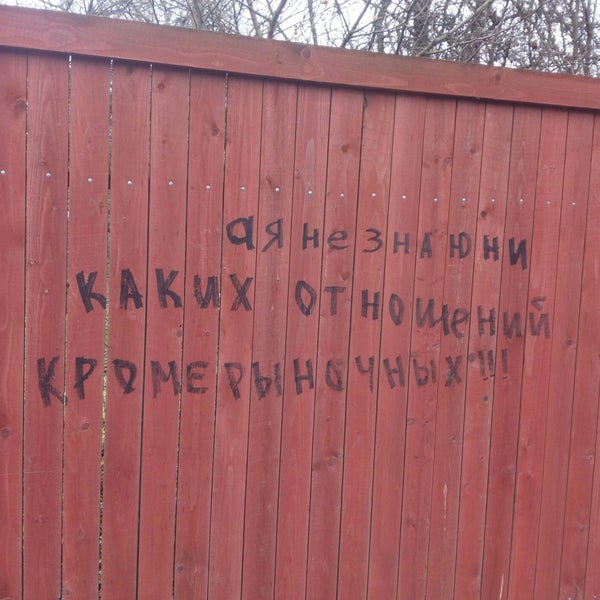 а я не знаю ни
каких отношений
кроме рыночных!!!